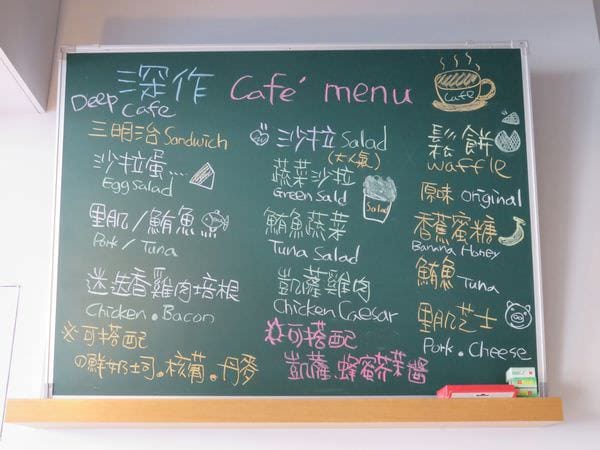 深作 Café menu
Deep Cafe
Cafe
三明治 Sandwich
沙拉蛋...
Egg Salad
里肌/鮪魚
Pork / Tuna
迷迭香雞肉培根
Chicken.Bacon
※可搭配
鮮奶吐司.核葡.丹麥
沙拉 Salad
(大人氣)
蔬菜沙拉
Green Sald
Salad
鮪魚蔬菜
Tuna Salad
凱薩雞肉
Chicken Caesar
可搭配
凱薩.蜂蜜芥茉醬
鬆餅
waffle
原味 original
香蕉蜜糖
Banana Honey
鮪魚 Tuna
里肌芝士
Pork.Cheese